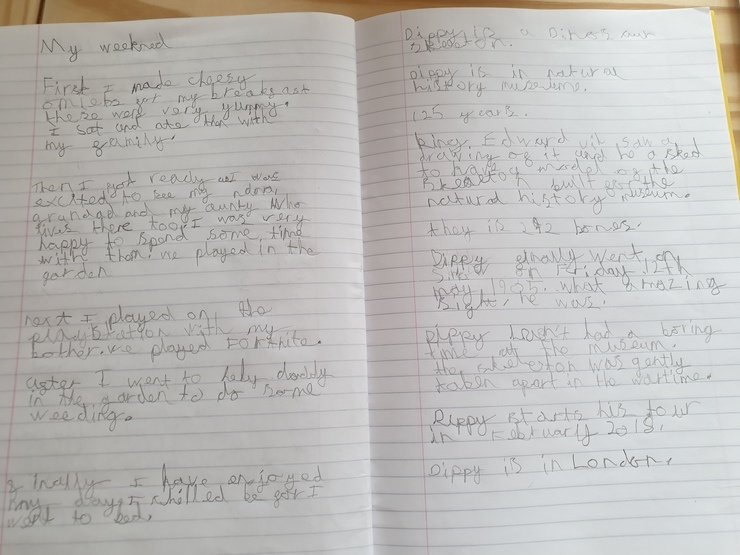 My weekned
First I made cheesy
omlets got my breakgast
these were very yummy.
I sat and ate them with
my gamily.
Then I got ready as I was
excited to see my
grandad and my aunty Who
lives there too I was very
happy to spend some time
with them. we played in the
garden
next I played on the
playstation with my
bother. we played Fortnite.
agter I went to help daddy
in the garden to do some
weeding.
ginally I have enjoyed
my day I chilled be gor I
went to bed.
Dippy is a Dinosaur
skeleton.
Dippy is in natural
history museume.
125 years.
King Edward vii saw a
drawing og it and he asked
to have a model og the
built gor the
natural history museum.
they is 292 bones.
Dippy ginally went on
on Friday 12th
may 1905. what amazing
sight he was.
Dippy hasn't had a boring
time at the museum.
the skeleton was gently
taken apart in the wartime.
Dippy starts his tour
in February 2018.
Dippy is in London.